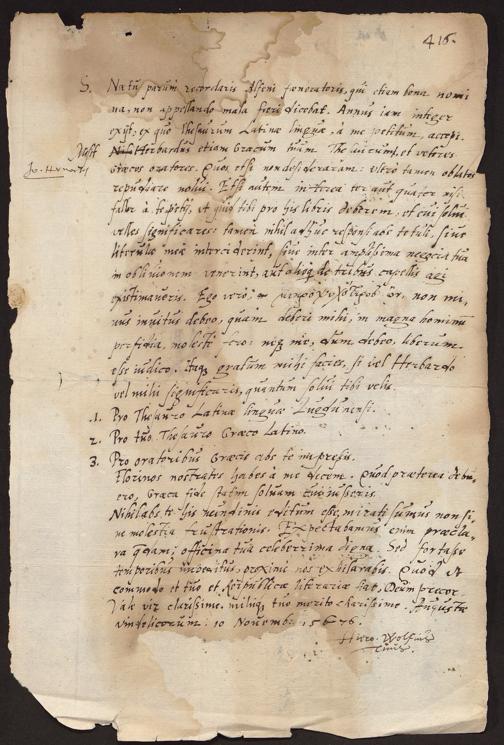 416.
S. Na tu parum recordaris Alfeni foeneratoris, qui etiam bona nomi
na, non appellando mala fieri dicebat. Annus iam integer
exijt, ex quo Thesaurum Latinae linguae, a me petitum, accepi.
Misit Herbardus etiam Graecum tuum. Thesaurum, et veteres
Jo. Herwart
Graecos oratores. Quos etsi non desiderarem: ultro tamen oblatos
repudiare nolui. Etsi autem interea ter aut quater nisi
fallor a te petij, ut quid tibi pro his libris deberem, et cui solui
velles significares: tamen nihil adhuc responsi abs te tuli, siue
literulae meae interciderint, siue inter amplissima negocia tua
in obliuionem venerint, aut de tribus capellis
existimaueris. Ego vero, non mi,
nus inuitus debeo, quam deberi mihi, in magna hominum
perfidia, molesti me, dum debeo, liberum
esse iudico. Itaq gratum mihi facies, si vel Herbardo
vel mihi significaris, quantum solui tibi velis.
.1. Pro Thesauro Latinae linguae Lugdunensi.
2. Pro tuo Thesauro Graeco Latino.
3. Pro oratoribus Graecis abs te impressis.
Florinos nostrates habes a me decem. Quod praeterea debu,
ero, Graeca fide statim soluam cui iusseris.
Nihil abs te his nundinis editum esse, mirati sumus non si,
ne molestia frustrationis. Expectabamus enim praecla,
ra quaedam, officina tua celeberrima digna. Sed fortasse
temporibus proximis nos exhilarabis. Quod ut
commodo et tuo et Reipublicae literariae fiat, Deum precor.
Vale vir clarissime mihiq tuo merito charissime. Augustae
Vindelicorum: 10 Nouemb. 1576.
Hiero. Wolfius
tuus.